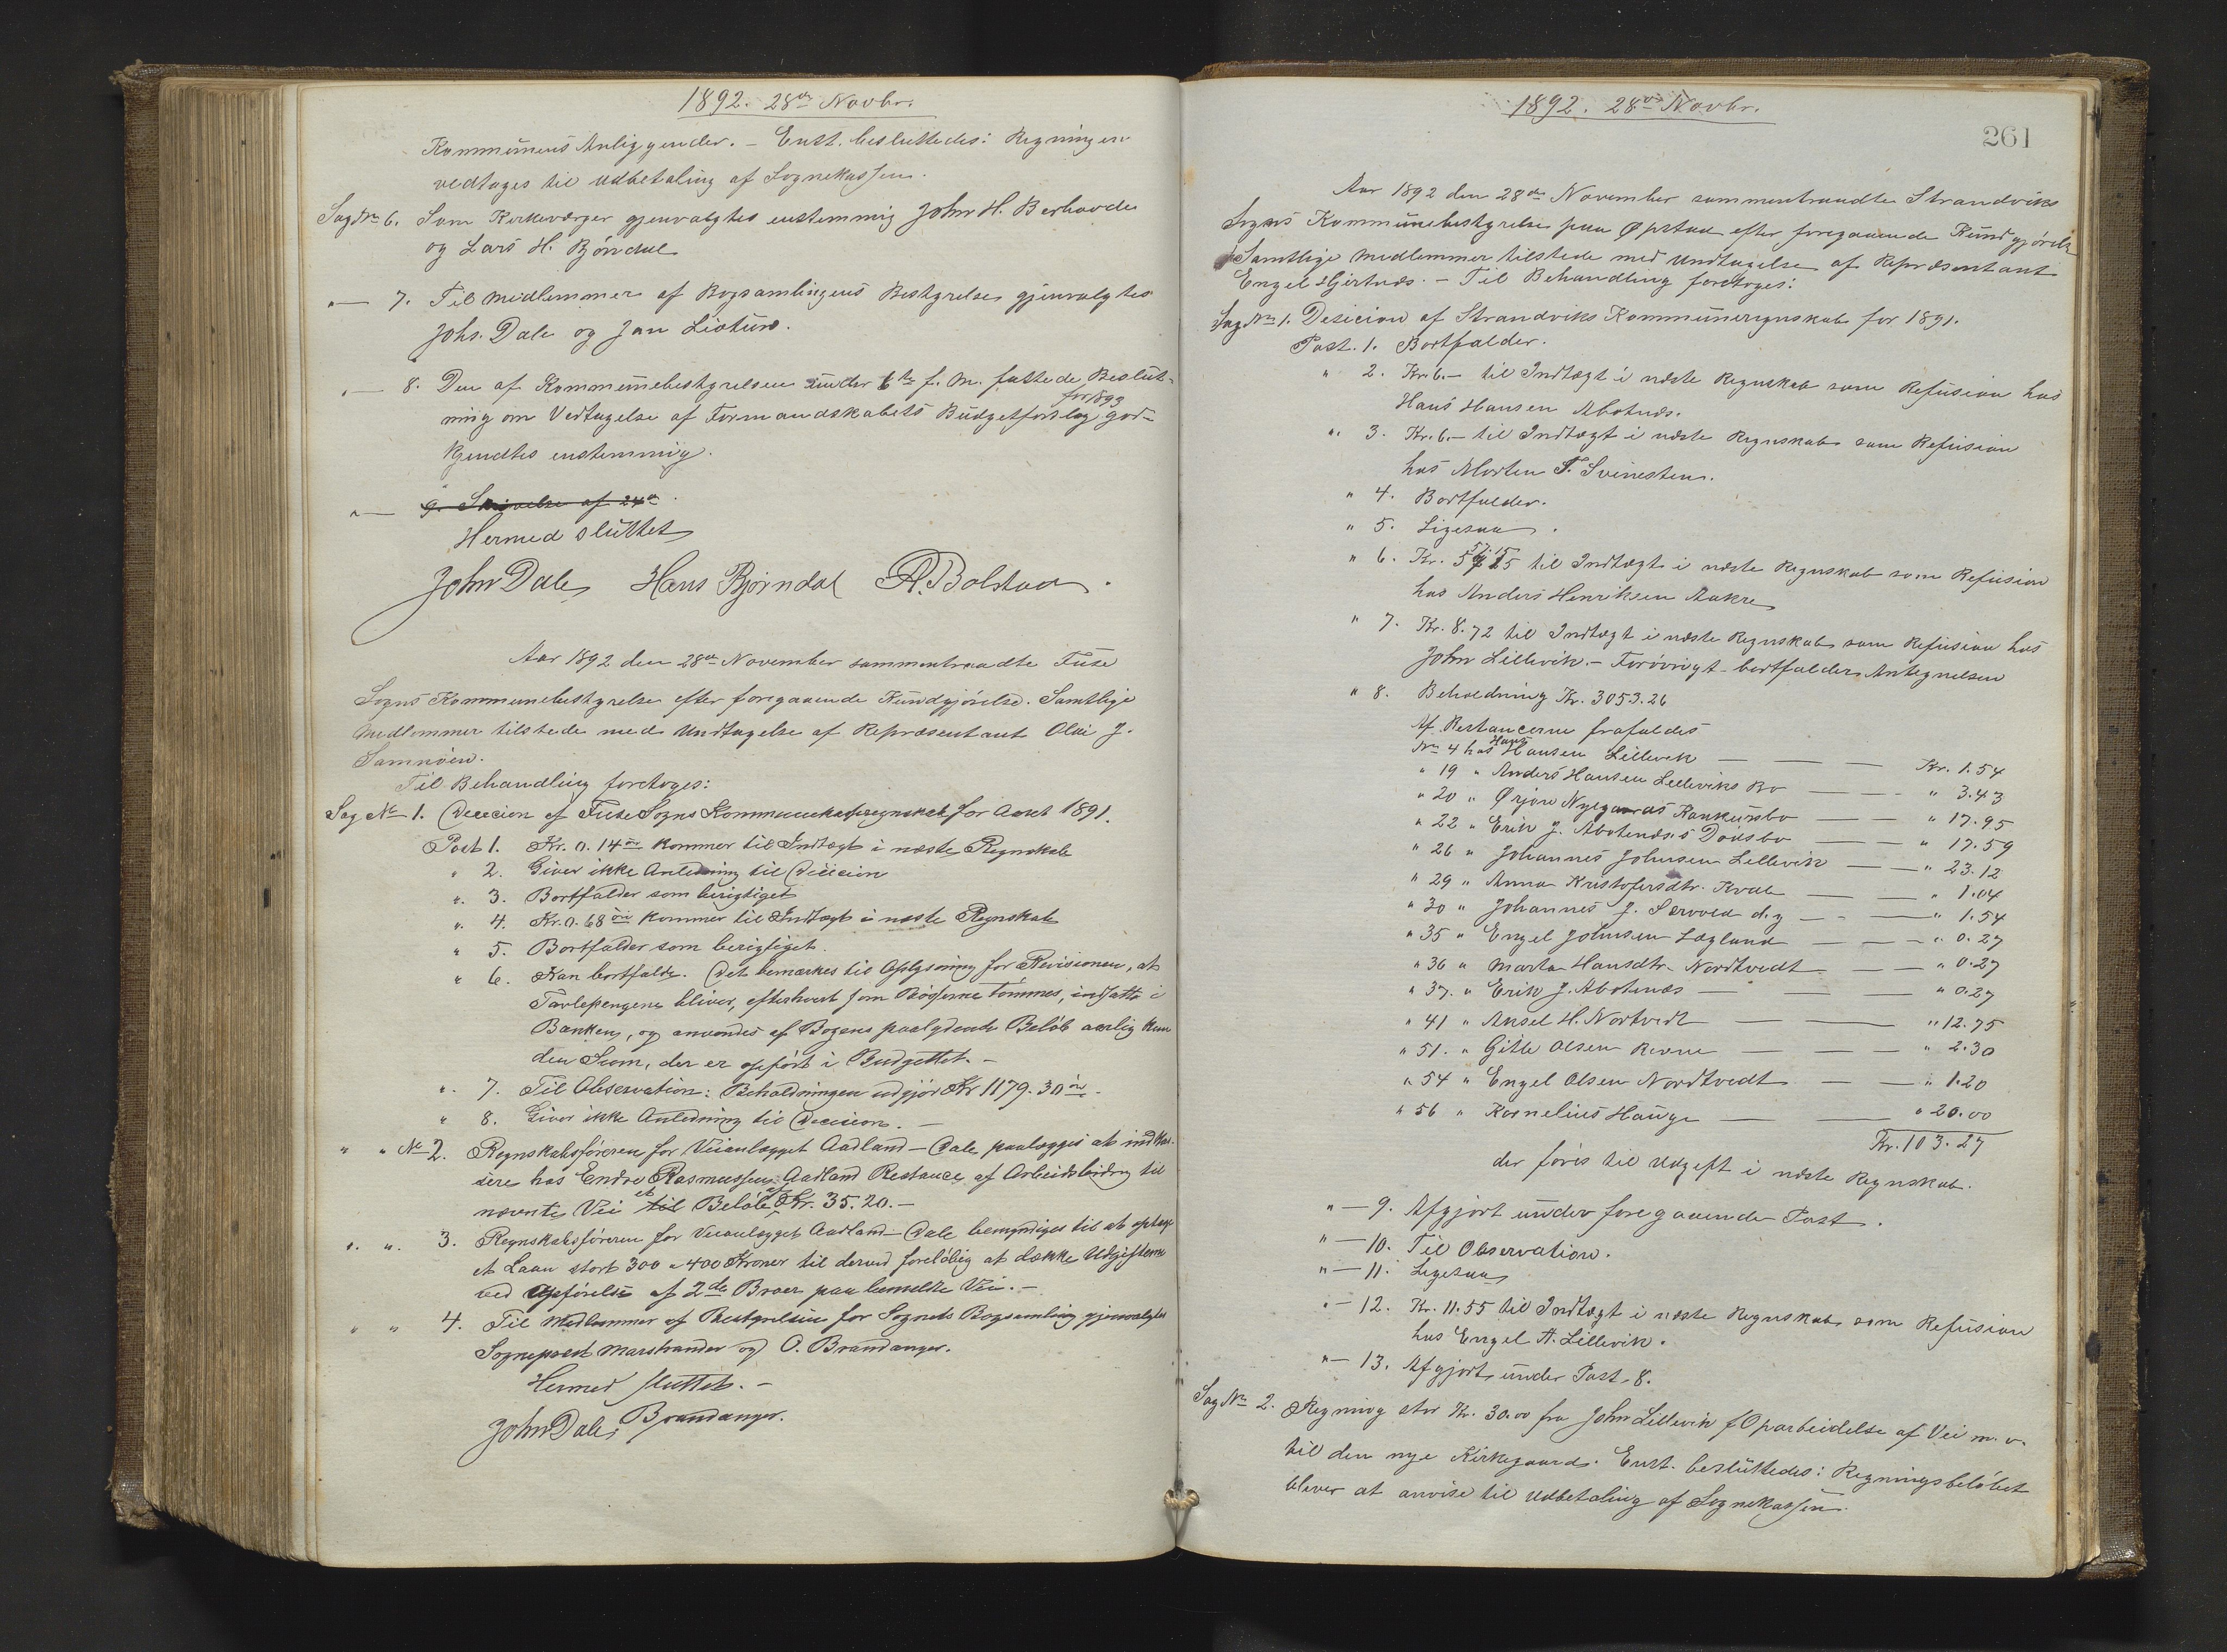 1892. 28de Novbr.
Kommunens Anliggender. – Enst. besluttedes: Regningen
vedtages til Udbetaling af Sognekassen.
Sag No 6. Som Kirkeværger gjenvalgtes enstemmig John H. Berhovde
og Lars H. Björndal
" — 7. Til Medlemmer af Bogsamlingens Bestyrelse gjenvalgtes
Johs. Dale og Jan Liotun.
" — 8. Den af Kommunebestyrelsen under 6te f. M. fattede Beslut-
ning om Vedtagelse af Formandskabets Budgetforslag for 1893 god-
kjendtes enstemmig.
" — 9. Skrivelse af 24de
Hermed sluttet
John Dale Hans Bjørndal A. Bolstad.
Aar 1892 den 28de November sammentraadte Fuse
Sogns Kommunebestyrelse efter foregaaende Kundgjörelse. Samtlige
Medlemmer tilstede med Undtagelse af Repræsentant Olai J.
Samnöen.
Til Behandling foretoges:
Sag No 1. Decicion af Fuse Sogns Kommunekasseregnskab for Aaret 1891.
Post 1. Kr. 0.14 öre kommer til Indtægt i næste Regnskab
" 2. Giver ikke Anledning til Decicion
". 3. Bortfalder som berigtiget
". 4. Kr. 0.68 öre kommer til Indtægt i næste Regnskab
" 5. Bortfalder som berigtiget.
" 6. Kan bortfalde. Det bemærkes til Oplysning for Revisionen, at
Tavlepengene bliver, efterhvert som Bösserne tömmes, indsatte i
Banken, og anvendes af Bogens paalydende Belöb aarlig kun
den Sum, der er opfört i Budgettet. –
". 7. Til Observation: Beholdningen udgjör Kr 1179.30 öre.
" 8. Giver ikke Anledning til Decision. –
" " No 2. Regnskabsföreren for Veianlægget Aadland – Dale paalægges at indkas-
sere hos Endre Rasmussen Aadland Restance af Arbeidsbidrag til
nævnte Vei til et Belöb af Kr. 35.20. –
". ". 3. Regnskabsföreren for Veianlægget Aadland – Dale bemyndiges til at optage
et Laan stort 300 a 400 Kroner til dermed foreløbig at dække Udgifterne
ved Opförelse af 2de Broer paa bemeldte Vei. –
" " 4. Til Medlemmer af Bestyrelsen for Sognets Bogsamling gjenvalgtes
Sogneprest Marstrander og O. Brandanger.
Hermed sluttet. –
John Dale, Brandanger.
1892. 28de Novbr.
261
Aar 1892 den 28de November sammentraadte Strandviks
Sogns Kommunebestyrelse paa Øpstad efter foregaaende Kundgjörelse
Samtlige Medlemmer tilstede med Undtagelse af Repræsentant
Engel Gjertnæs. – Til Behandling foretoges:
Sag No 1. Desicion af Strandviks Kommuneregnskab for 1891.
Post. 1. Bortfalder.
" 2. Kr. 6.– til Indtægt i næste Regnskab som Refusion hos
Hans Hansen Abotnæs.
". 3. Kr. 6.– til Indtægt i næste Regnskab som Refusion
hos Morten T. Svinesten.
" 4. Bortfalder.
" 5. Ligesaa.
" 6. Kr. 57.15 til Indtægt i næste Regnskab som Refusion
hos Anders Henriksen Aakre
" 7. Kr. 8.72 til Indtægt i næste Regnskab som Refusion hos
John Lillevik. – Forövrigt bortfalder Antegnelsen
" 8. Beholdning Kr. 3053.26
Af Restancerne frafaldes
No 4 hos Hans Hansen Lillevik — — — Kr. 1.54
" 19 " Anders Hansen Lilleviks Bo — — — " 3.43
" 20 " Ørjan Nygaards Konkursbo — — " 17.95
" 22 " Erik J. Abotnæs's Dödsbo — — " 17.59
" 26 " Johannes Johnsen Lillevik — — " 23.12
" 29 " Anna Kristofersdtr. Kvale — — " 1.04
" 30 " Johannes J. Sævold d.y — — " 1.54
" 35 " Engel Johnsen Lægland — — — " 0.27
" 36 " Marta Hansdtr. Nordtvedt — — " 0.27
" 37. " Erik J. Abotnæs — — — " 0.27
" 41 " Aksel H. Nortvedt — — " 12.75
" 51. " Gitle Olsen Revne — — — " 2.30
" 54 " Engel Olsen Nordtvedt — — " 1.20
" 56 " Kornelius Hauge — — " 20.00
Kr. 103.27
der föres til Udgift i næste Regnskab.
" — 9. Afgjort under foregaaende Post.
" — 10. Til Observation.
" — 11. Ligesaa
" — 12. Kr. 11.55 til Indtægt i næste Regnskab som Refusion
hos Engel A. Lillevik.
" — 13. Afgjort under Post 8.
Sag No 2. Regning stor Kr. 30.00 fra John Lillevik f Oparbeidelse af Vei m. v.
til den nye Kirkegaard. Enst. besluttedes: Regningsbelöbet
bliver at anvise til Udbetaling af Sognekassen.